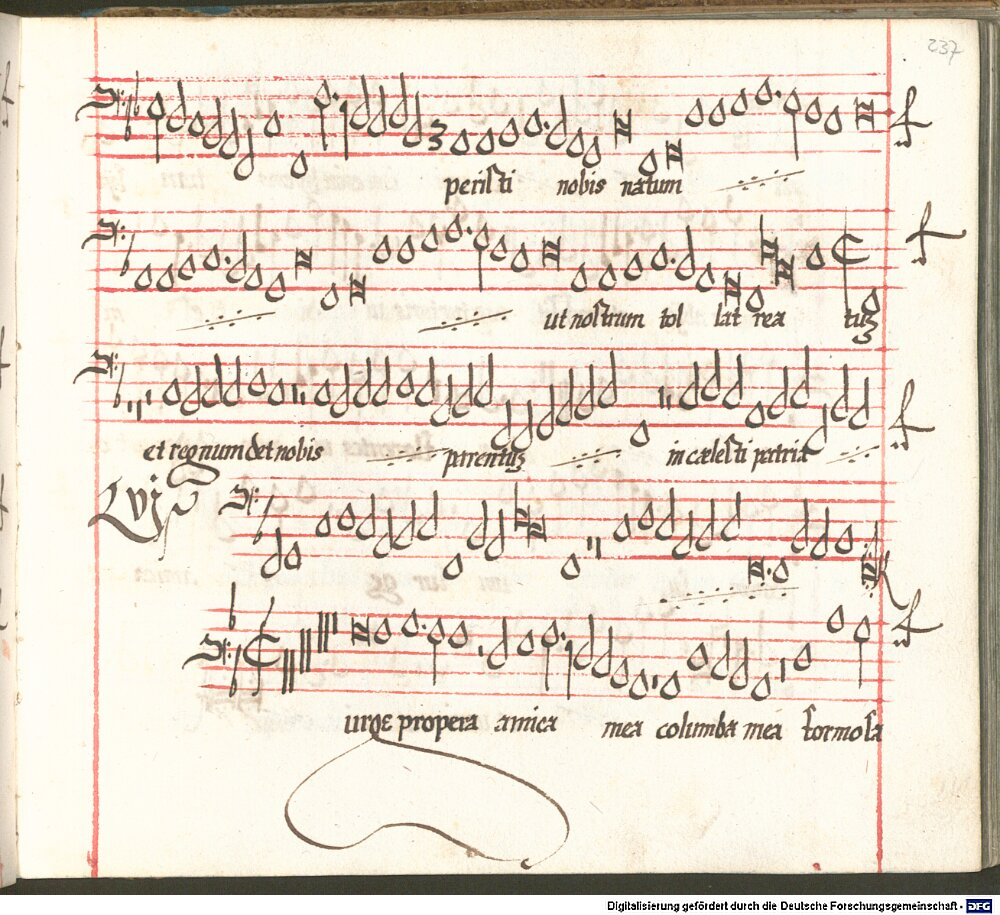 237
peristi nobis natum
ut nostrum tol lat rea tuʒ
et regnum det nobis parentuʒ in cælesti patria
Lvj
urge propera amica mea columba mea formosa
Digitalisierung gefördert durch die Deutsche Forschungsgemeinschaft - DFG